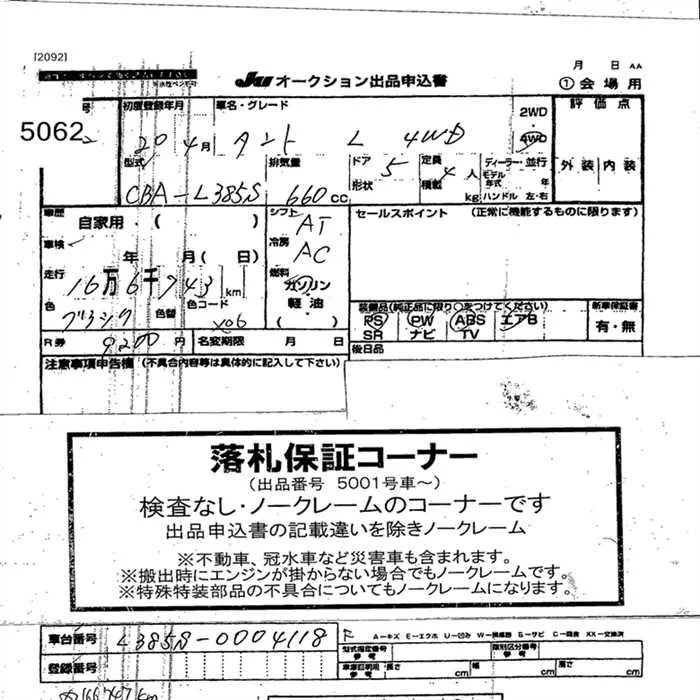 [2092]
月 日 AA
JU オークション出品申込書
①会場用
5062
初度登録年月
車名・グレード
2WD
・
4WD
評価点
20年4月
タント L 4WD
型式
排気量
ドア
形状
5
定員
積載
4人
kg
ディーラー・並行
モデル
年式 年
ハンドル 左・右
外装 内装
CBA-L385S
660cc
車歴
自家用・( )
シフト
AT
セールスポイント (正常に機能するものに限ります)
車検
年 月( 日)
冷房
AC
走行
16万6千743km
燃料
ガソリン
軽油・
( )
色
色替
色コード
X06
装備品(純正品に限り○をつけてください)
新車保証書
PS PW ABS エアB
SR ナビ TV
有・無
R券
9200円
名変期限 月 日
後日品
注意事項申告欄(不具合内容等は具体的に記入して下さい)
落札保証コーナー
(出品番号 5001号車~)
検査なし・ノークレームのコーナーです
出品申込書の記載違いを除きノークレーム
※不動車、冠水車など災害車も含まれます。
※搬出時にエンジンが掛からない場合でもノークレームです。
※特殊特装部品の不具合についてもノークレームになります。
車台番号
L385S-0004118
A-キズ E-エクボ U-凹み W-補修跡 S-サビ C-腐食 XX-交換済
型式指定番号
参考
類別区分番号
参考
登録番号
車庫証明用
参考
長さ cm
幅 cm
高さ cm